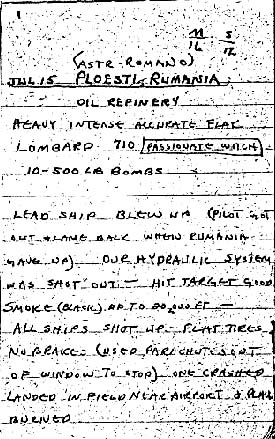 1
11 5
16 12
(ASTR-ROMANO)
JUL 15 PLOESTI, RUMANIA
OIL REFINERY
HEAVY INTENSE ACCURATE FLAK
LOMBARD 710 PASSIONATE WITCH
10-500 LB BOMBS
LEAD SHIP BLEW UP (PILOT GOT
OUT & CAME BACK WHEN RUMANIA
GAVE UP) OUR HYDRAULIC SYSTEM
WAS SHOT OUT - HIT TARGET GOOD
SMOKE (BLACK) UP TO 20,000 FT -
ALL SHIPS SHOT UP - FLAT TIRES
NO BRAKE - (USED PARACHUTES OUT
OF WINDOW TO STOP) ONE CRASHED
LANDED IN FIELD NEAR AIRPORT &
BURNED